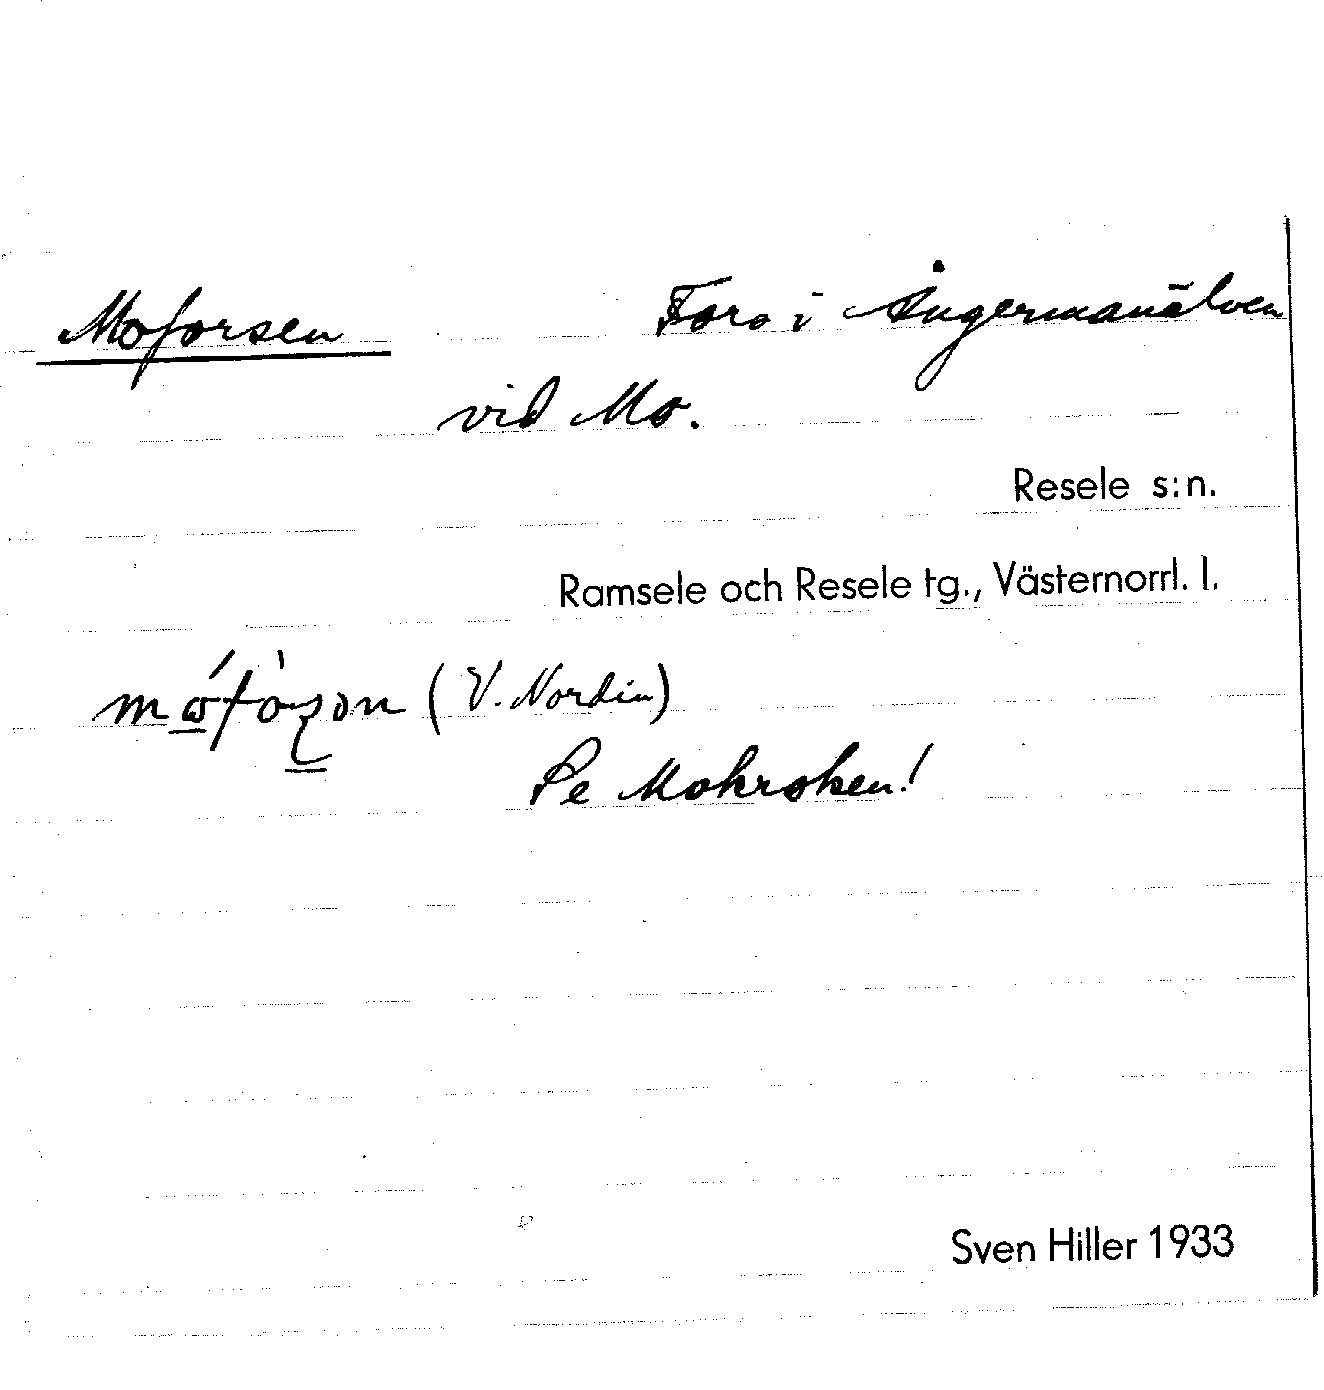 Moforsen Fors i Ångermanälven
vid Mo.
Resele s:n.
Ramsele och Resele tg., Västernorrl. l.
(V. Nordin)
Se Mokroken!
Sven Hiller 1933